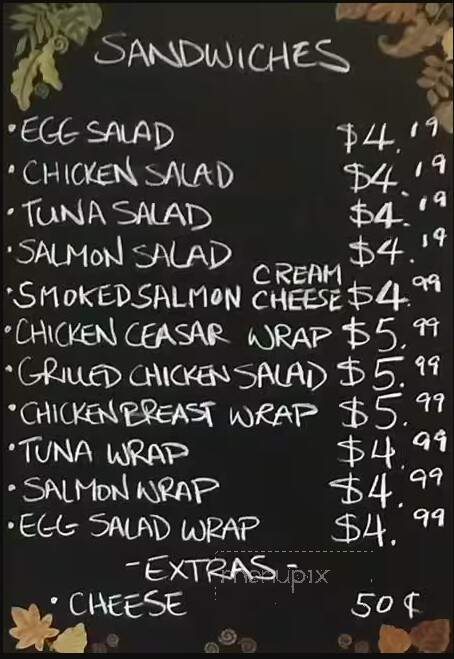 SANDWICHES
• EGG SALAD $4.19
• CHICKEN SALAD $4.19
• TUNA SALAD $4.19
• SALMON SALAD $4.19
• SMOKED SALMON CREAM CHEESE $4.99
• CHICKEN CEASAR WRAP $5.99
• GRILLED CHICKEN SALAD $5.99
• CHICKEN BREAST WRAP $5.99
• TUNA WRAP $4.99
• SALMON WRAP $4.99
• EGG SALAD WRAP $4.99
- EXTRAS -
menupix
• CHEESE 50¢